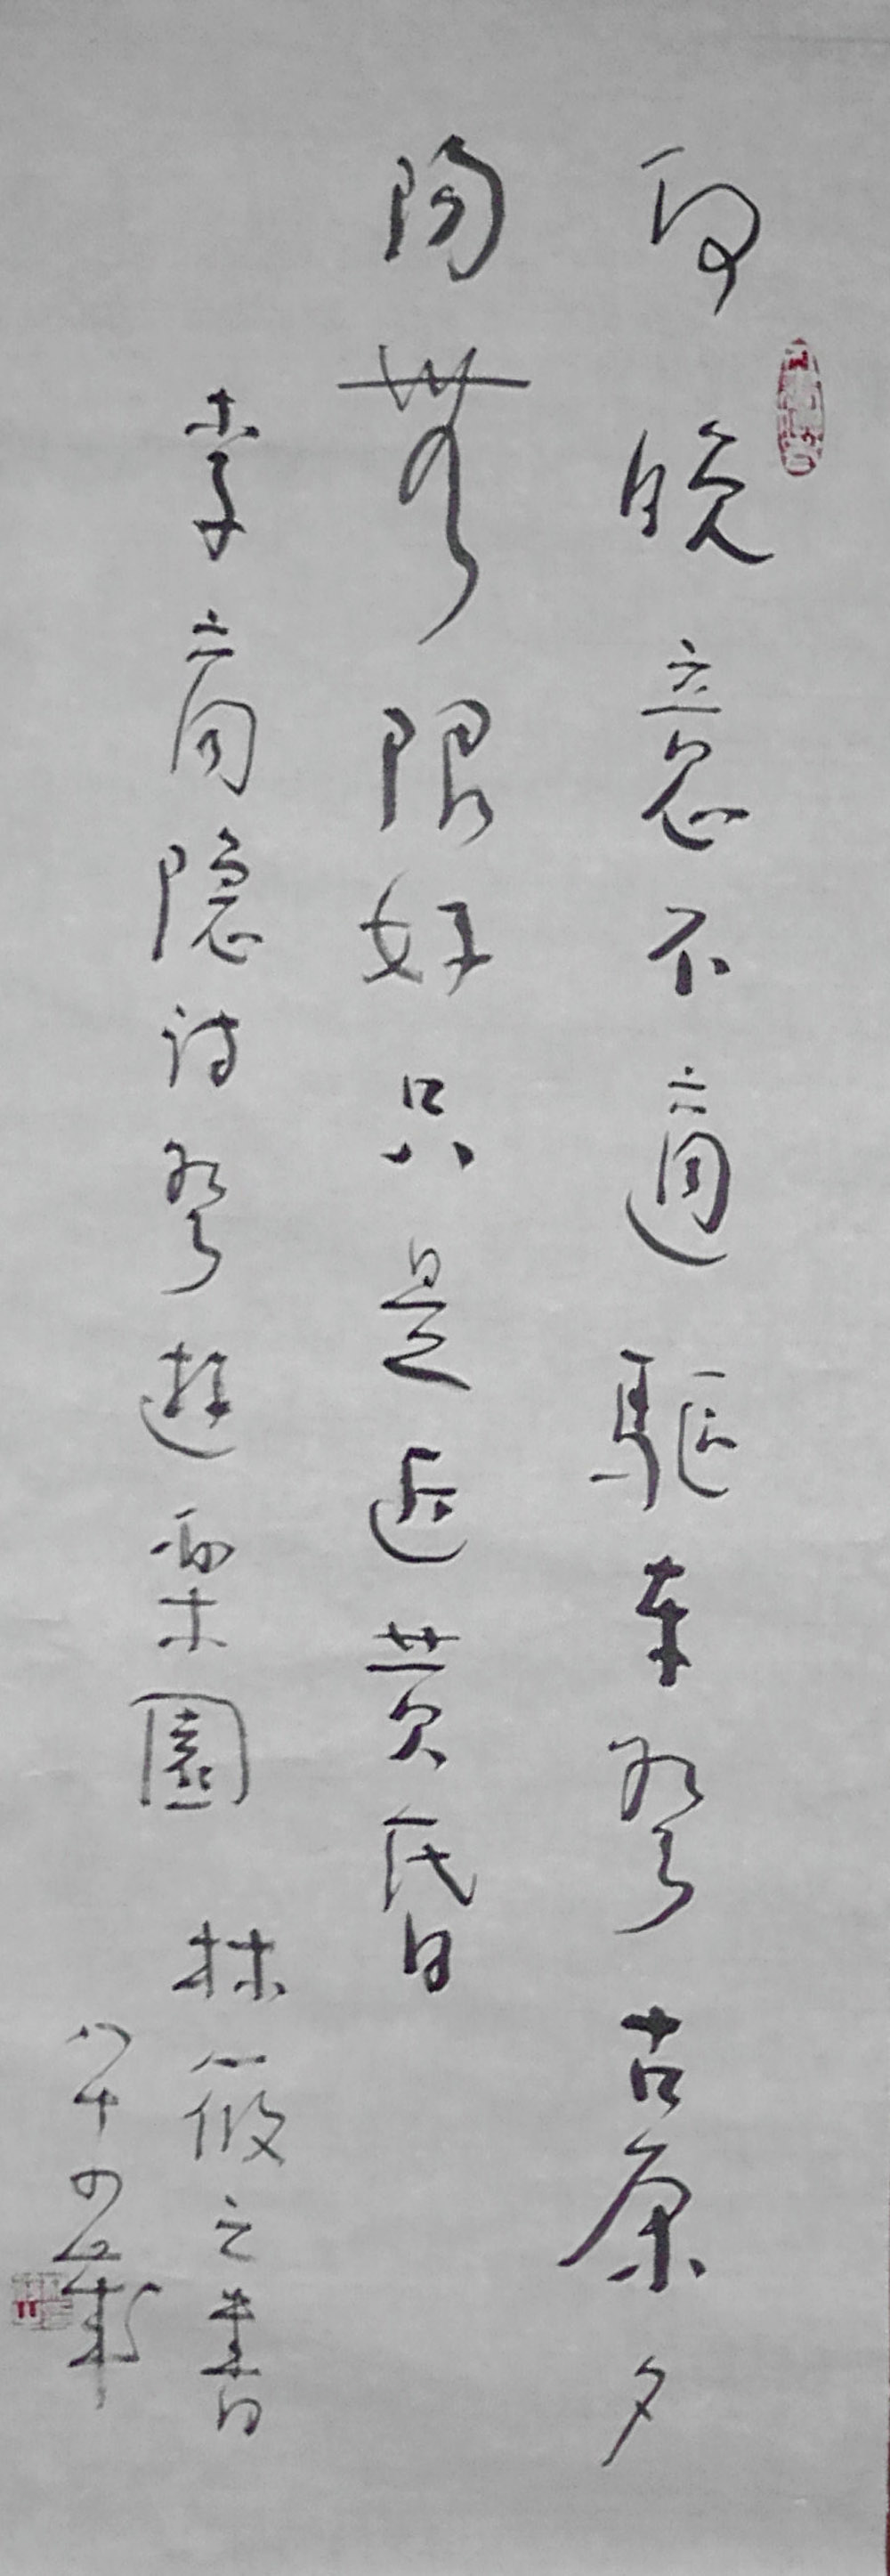 向晚意不適驅車登古原夕
陽無限好只是近黃昏
李商隱詩登遊樂園 林筱之書
八十四歲